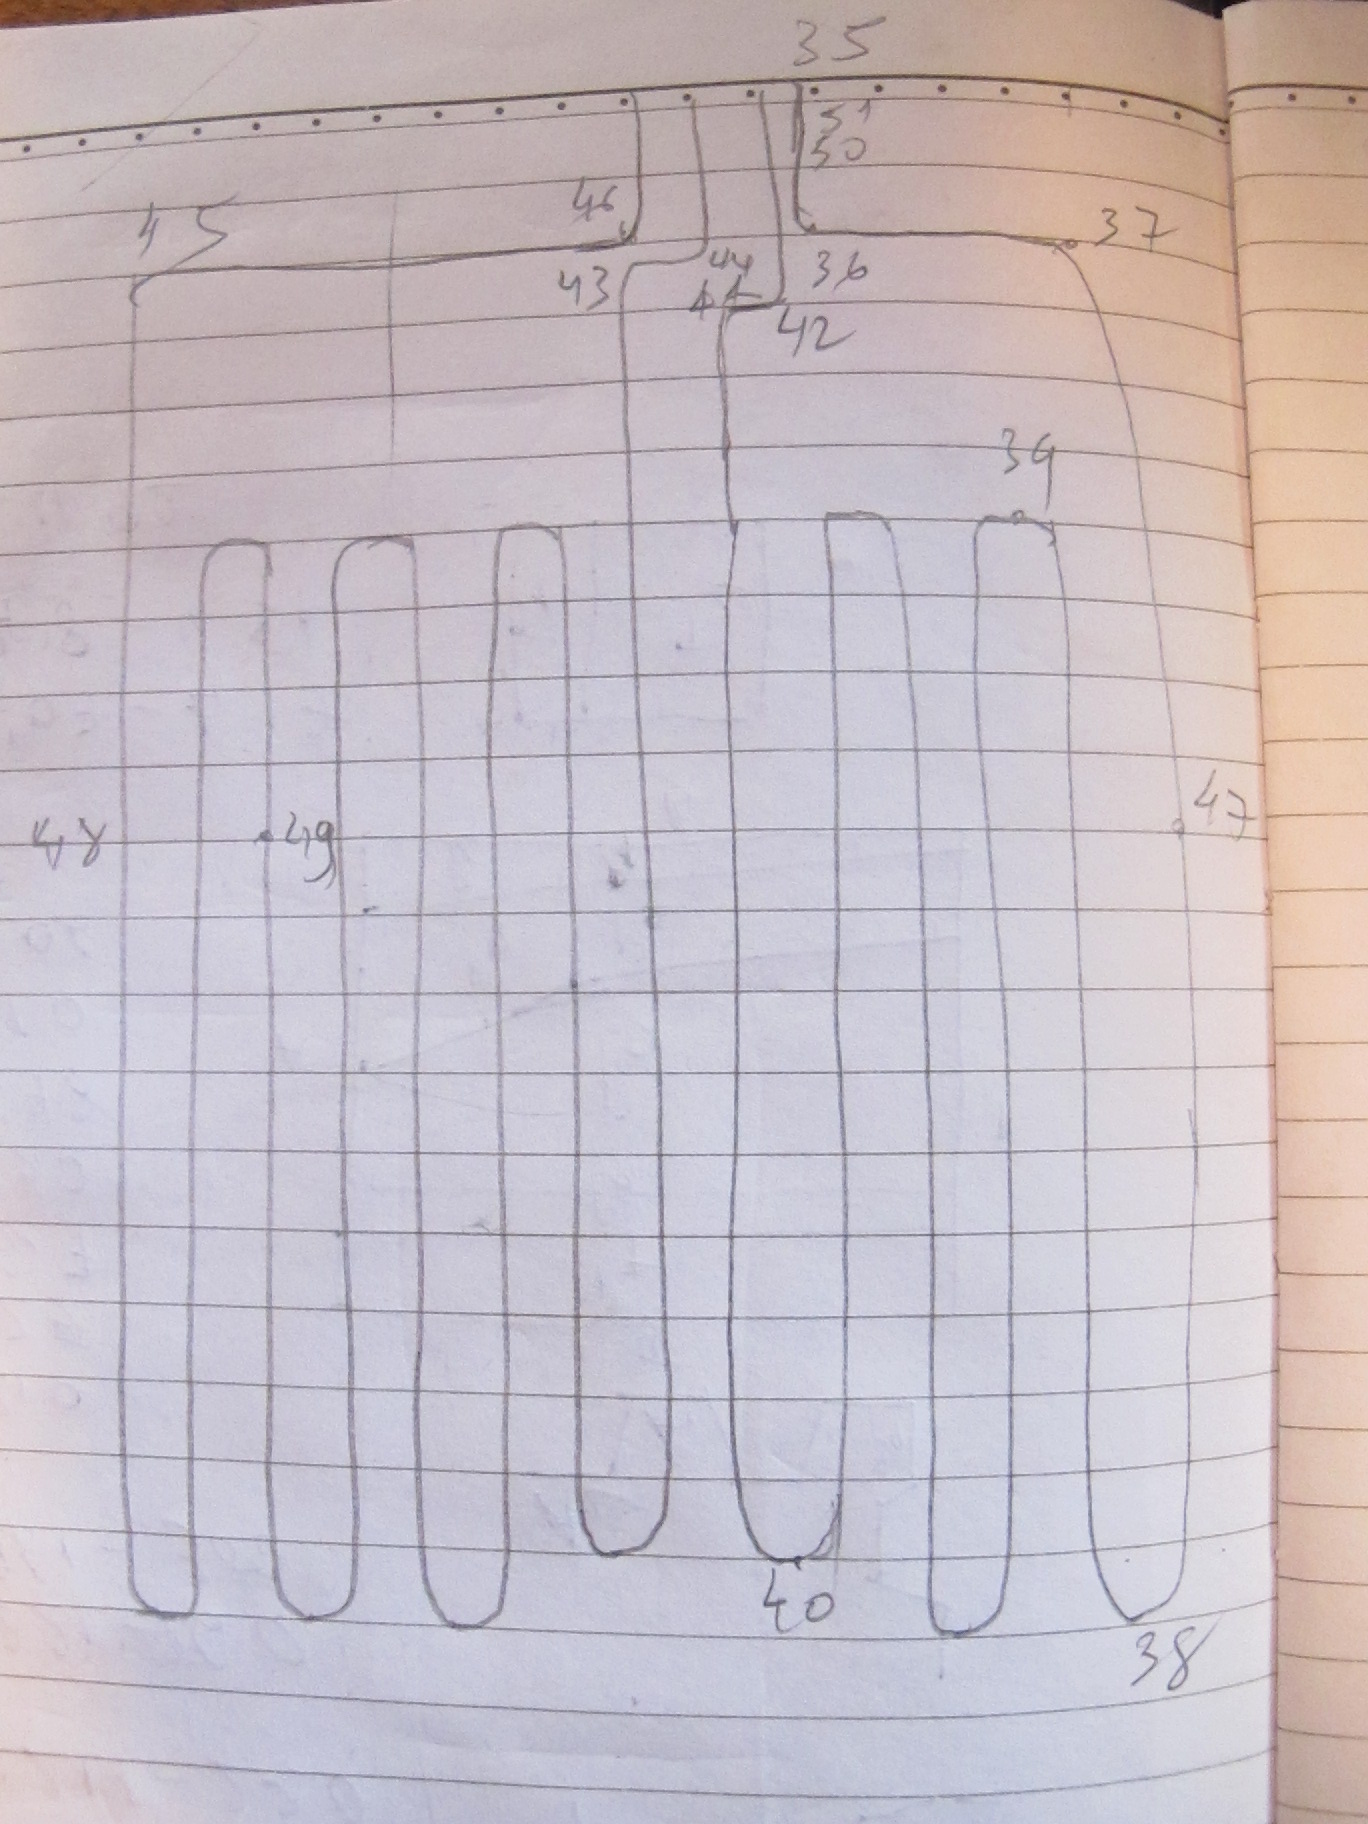 35
51
50
46
45
37
43
44
36
41
42
39
47
48
49
40
38